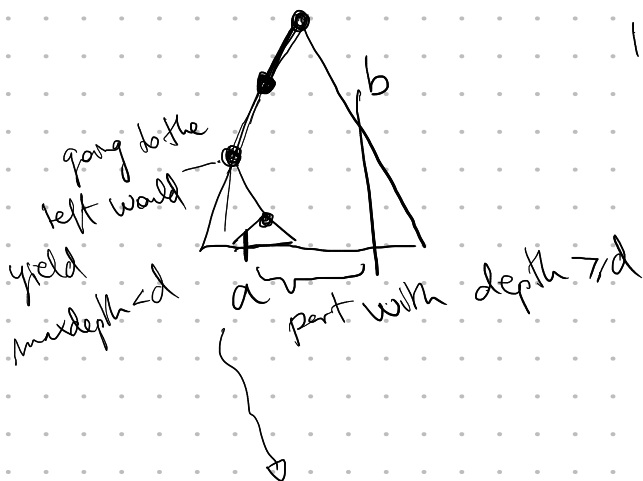 b
going to the
left would
yield
maxdepth < d
a
part with depth ⩾ d